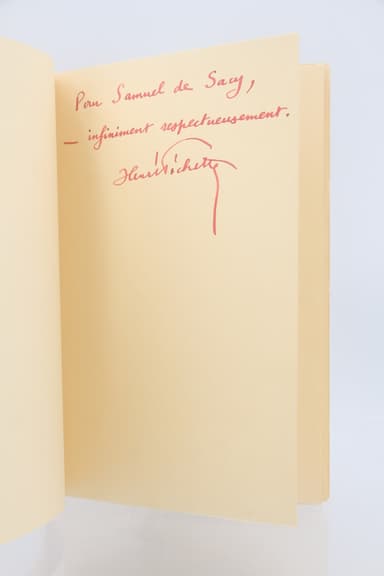 Pour Samuel de Sacy,
— infiniment respectueusement.
Henri Pichette